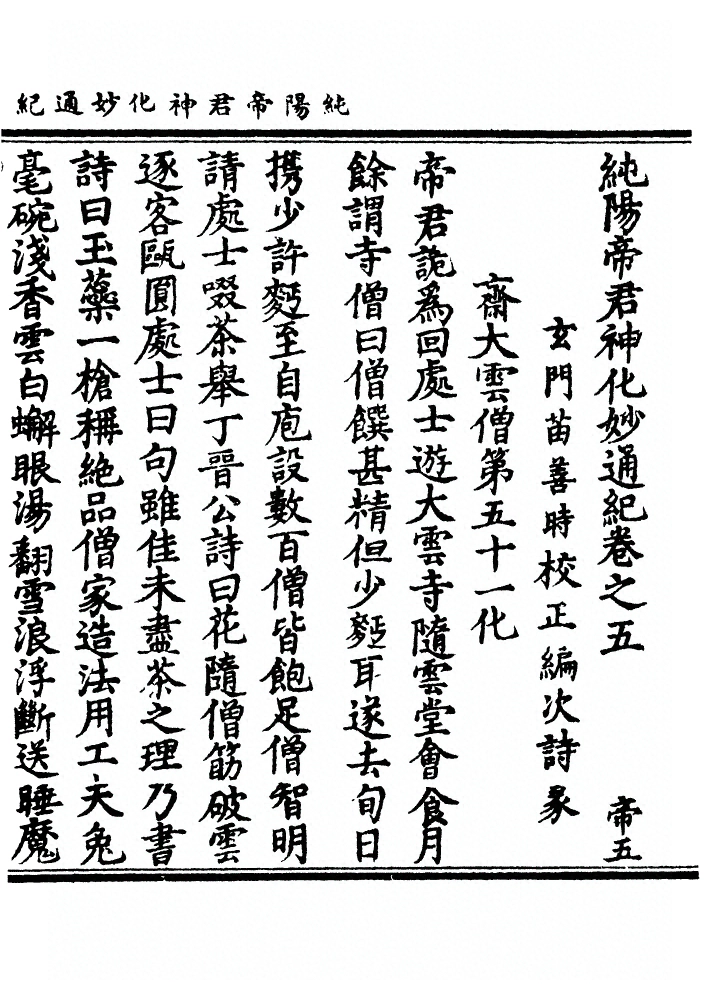 純陽帝君神化妙通紀
純陽帝君神化妙通紀卷之五 帝五
玄門苗善時校正編次詩彖
齋大雲僧第五十一化
帝君詭爲回處士遊大雲寺隨雲堂會食月
餘謂寺僧曰僧饌甚精但少麫耳遂去旬日
攜少許麫至自庖設數百僧皆飽足僧智明
請處士啜茶舉丁晉公詩曰花隨僧筯破雲
逐客甌圓處士曰句雖佳未盡茶之理乃書
詩曰玉蘂一槍稱絶品僧家造法用工夫兔
毫碗淺香雲白蠏眼湯翻雪浪浮斷送睡魔